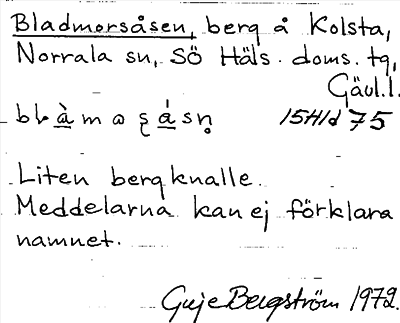 Bladmorsåsen, berg å Kolsta,
Norrala sn, Sö Häls. doms. tg,
Gävl. l.
15H1d 75
Liten bergknalle.
Meddelarna kan ej förklara
namnet.
Guje Bergström 1972.